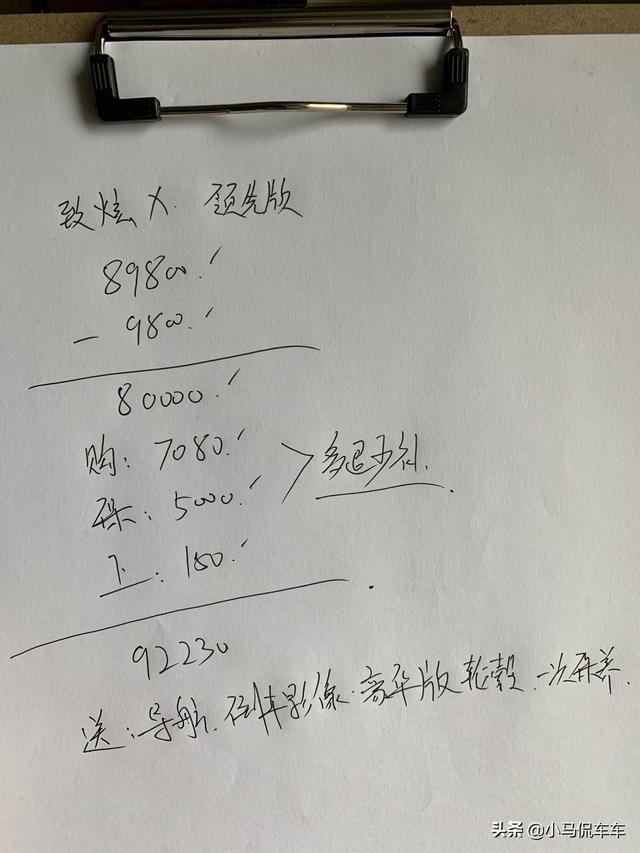 致炫X. 领先版
89800.
- 9800.
80000.
购: 7080.
保: 5000. > 多退少补.
上: 150.
92230
送: 导航. 倒车影像. 豪华版轮毂. 一次保养.
头条 @小马侃车车